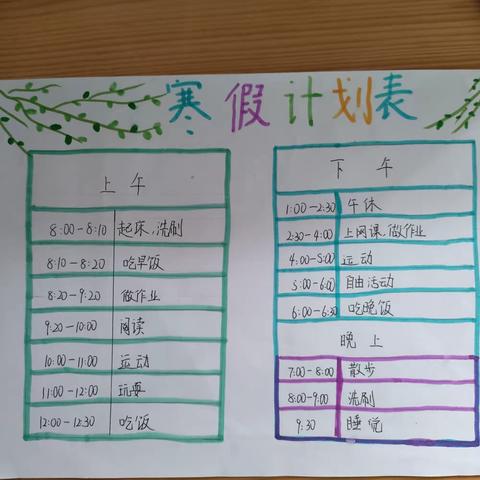 寒假计划表
上午
8:00-8:10 起床、洗刷
8:10-8:20 吃早饭
8:20-9:20 做作业
9:20-10:00 阅读
10:00-11:00 运动
11:00-12:00 玩耍
12:00-12:30 吃饭
下午
1:00-2:30 午休
2:30-4:00 上网课、做作业
4:00-5:00 运动
5:00-6:00 自由活动
6:00-6:30 吃晚饭
晚上
7:00-8:00 散步
8:00-9:00 洗刷
9:30 睡觉